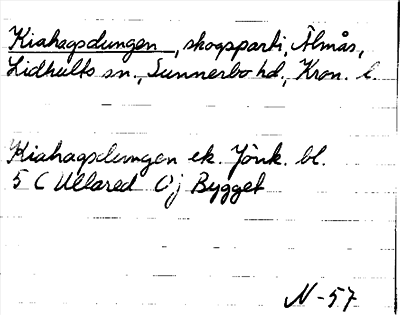 Kiahagsdungen, skogsparti, Älmås,
Lidhults sn., Sunnerbo hd., Kron. l.
Kiahagsdungen ek. Jönk. bl.
5 C Ullared Oj Bygget
N-57